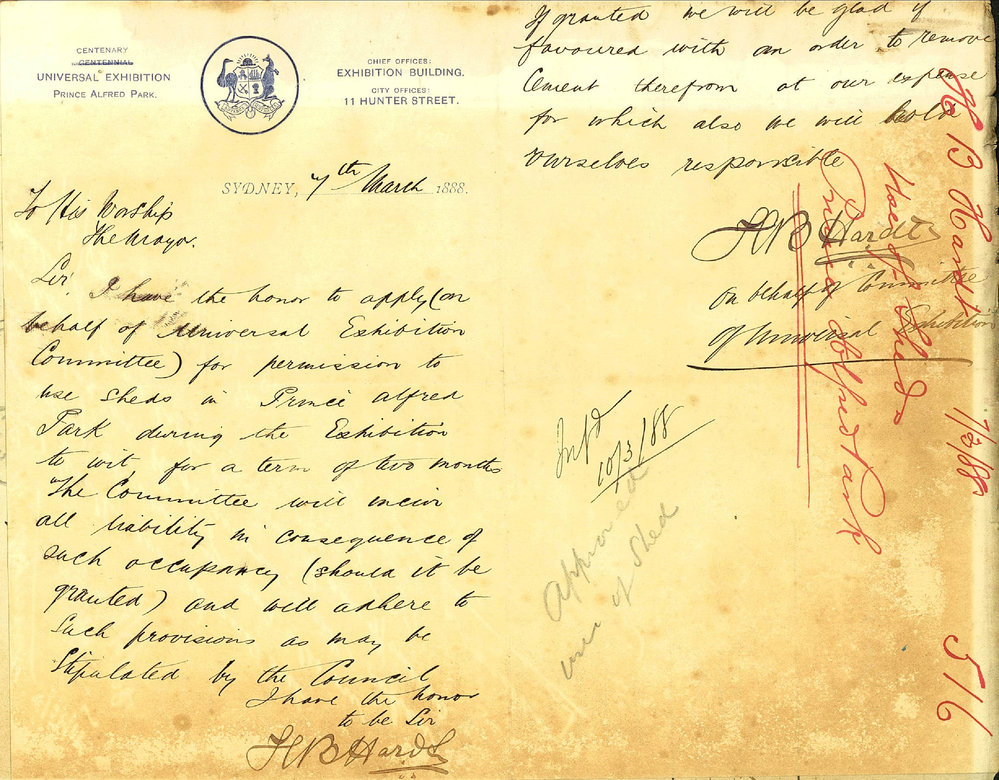 CENTENARY
CENTENNIAL
UNIVERSAL EXHIBITION
PRINCE ALFRED PARK.
CHIEF OFFICES:
EXHIBITION BUILDING.
CITY OFFICES:
11 HUNTER STREET.
SYDNEY, 7th March 1888.
To His Worship
The Mayor.
Sir
I have the honor to apply (on
behalf of Universal Exhibition
Committee) for permission to
use sheds in Prince Alfred
Park during the Exhibition
to wit, for a term of two months
The Committee will incur
all liability in consequence of
such occupancy (should it be
granted) and will adhere to
such provisions as may be
stipulated by the Council
I have the honor
to be Sir
H B Hardt
If granted we will be glad if
favoured with an order to remove
Cement therefrom at our expense
for which also we will hold
ourselves responsible
H B Hardt
On behalf of Committee
of Universal Exhibition
Infd
10/3/88
Approved
use of Shed
H B Hardt 7/3/88 516
Use of Sheds
Prince Alfred Park